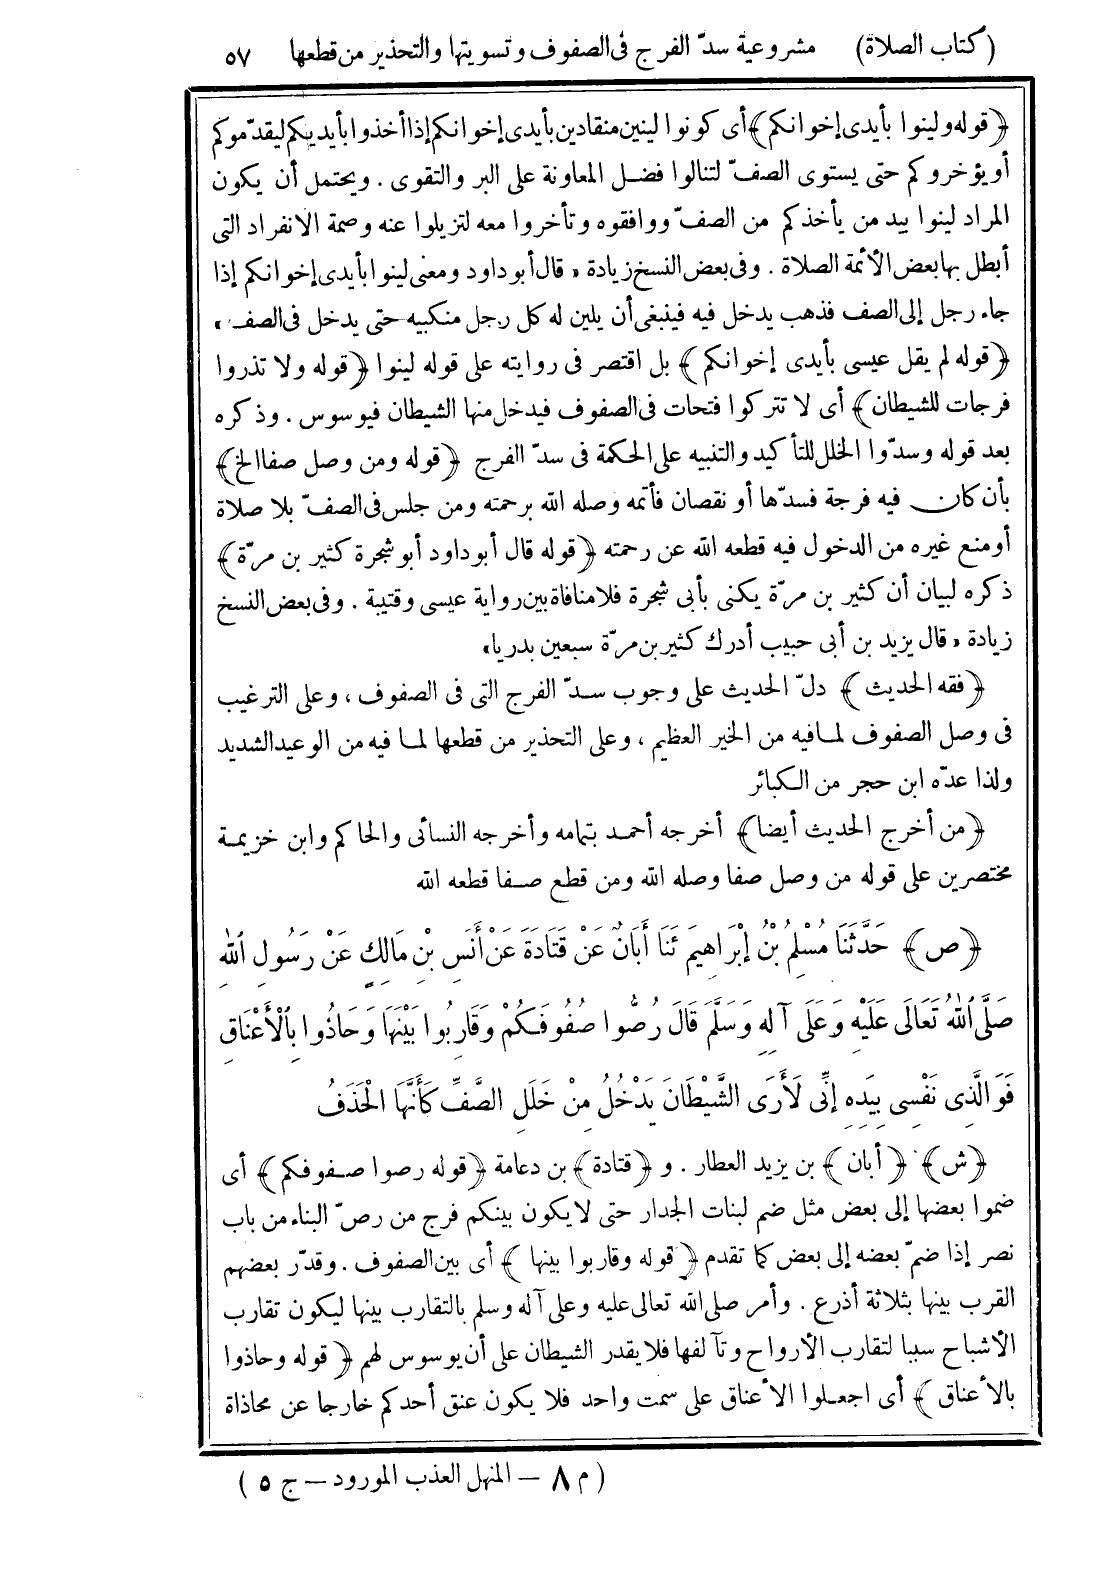 (كتاب الصلاة) مشروعية سدّ الفرج فى الصفوف وتسويتها والتحذير من قطعها ٥٧
﴿قوله ولينوا بأيدى إخوانكم﴾ أى كونوا لينين منقادين بأيدى إخوانكم إذا أخذوا بأيديكم ليقدّموكم
أو يؤخروكم حتى يستوى الصفّ لتنالوا فضل المعاونة على البر والتقوى . ويحتمل أن يكون
المراد لينوا بيد من يأخذكم من الصفّ ووافقوه وتأخروا معه لتزيلوا عنه وصمة الانفراد التى
أبطل بها بعض الأئمة الصلاة . وفى بعض النسخ زيادة « قال أبو داود ومعنى لينوا بأيدى إخوانكم إذا
جاء رجل إلى الصف فذهب يدخل فيه فينبغى أن يلين له كل رجل منكبيه حتى يدخل فى الصف »
﴿قوله لم يقل عيسى بأيدى إخوانكم﴾ بل اقتصر فى روايته على قوله لينوا ﴿قوله ولا تذروا
فرجات للشيطان﴾ أى لا تتركوا فتحات فى الصفوف فيدخل منها الشيطان فيوسوس . وذكره
بعد قوله وسدّوا الخلل للتأكيد والتنبيه على الحكمة فى سدّ الفرج ﴿قوله ومن وصل صفا الخ﴾
بأن كان فيه فرجة فسدّها أو نقصان فأتمه وصله الله برحمته ومن جلس فى الصفّ بلا صلاة
أو منع غيره من الدخول فيه قطعه الله عن رحمته ﴿قوله قال أبو داود أبو شجرة كثير بن مرّة﴾
ذكره لبيان أن كثير بن مرّة يكنى بأبى شجرة فلا منافاة بين رواية عيسى وقتيبة . وفى بعض النسخ
زيادة « قال يزيد بن أبى حبيب أدرك كثير بن مرّة سبعين بدريا»
﴿فقه الحديث﴾ دلّ الحديث على وجوب سدّ الفرج التى فى الصفوف ، وعلى الترغيب
فى وصل الصفوف لما فيه من الخير العظيم ، وعلى التحذير من قطعها لما فيه من الوعيد الشديد
ولذا عدّه ابن حجر من الكبائر
﴿من أخرج الحديث أيضا﴾ أخرجه أحمد بتمامه وأخرجه النسائى والحاكم وابن خزيمة
مختصرين على قوله من وصل صفا وصله الله ومن قطع صفا قطعه الله
﴿ص﴾ حَدَّثَنَا مُسْلِمُ بْنُ إِبْرَاهِيمَ ثَنَا أَبَانُ عَنْ قَتَادَةَ عَنْ أَنَسِ بْنِ مَالِكٍ عَنْ رَسُولِ اللهِ
صَلَّى اللهُ تَعَالَى عَلَيْهِ وَعَلَى آلِهِ وَسَلَّمَ قَالَ رُصُّوا صُفُوفَكُمْ وَقَارِبُوا بَيْنَهَا وَحَاذُوا بِالْأَعْنَاقِ
فَوَالَّذِى نَفْسِى بِيَدِهِ إِنِّى لَأَرَى الشَّيْطَانَ يَدْخُلُ مِنْ خَلَلِ الصَّفِّ كَأَنَّهَا الْحَذَفُ
﴿ش﴾ ﴿أبان﴾ بن يزيد العطار . و ﴿قتادة﴾ بن دعامة ﴿قوله رصوا صفوفكم﴾ أى
ضموا بعضها إلى بعض مثل ضم لبنات الجدار حتى لا يكون بينكم فرج من رصّ البناء من باب
نصر إذا ضمّ بعضه إلى بعض كما تقدم ﴿قوله وقاربوا بينها﴾ أى بين الصفوف . وقدّر بعضهم
القرب بينها بثلاثة أذرع . وأمر صلى الله تعالى عليه وعلى آله وسلم بالتقارب بينها ليكون تقارب
الأشباح سببا لتقارب الأرواح وتآلفها فلا يقدر الشيطان على أن يوسوس لهم ﴿قوله وحاذوا
بالأعناق﴾ أى اجعلوا الأعناق على سمت واحد فلا يكون عنق أحدكم خارجا عن محاذاة
(م ٨ – المنهل العذب المورود – ج ٥)